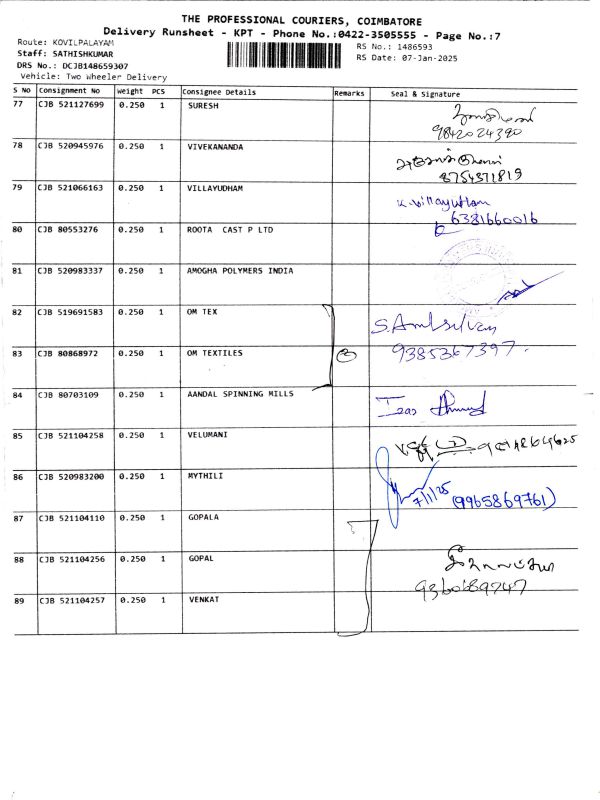 THE PROFESSIONAL COURIERS, COIMBATORE
Delivery Runsheet - KPT - Phone No.:0422-3505555 - Page No.:7
Route: KOVILPALAYAM
Staff: SATHISHKUMAR
DRS No.: DCJB148659307
Vehicle: Two Wheeler Delivery
RS No.: 1486593
RS Date: 07-Jan-2025
S No Consignment No Weight PCS Consignee Details Remarks Seal & Signature
77 CJB 521127699 0.250 1 SURESH
9842024390
78 CJB 520945976 0.250 1 VIVEKANANDA
8754371819
79 CJB 521066163 0.250 1 VILLAYUDHAM K.Villayutham
6381660016
80 CJB 80553276 0.250 1 ROOTA CAST P LTD
81 CJB 520983337 0.250 1 AMOGHA POLYMERS INDIA
82 CJB 519691583 0.250 1 OM TEX
83 CJB 80868972 0.250 1 OM TEXTILES 2 9385367397.
84 CJB 80703109 0.250 1 AANDAL SPINNING MILLS
85 CJB 521104258 0.250 1 VELUMANI
86 CJB 520983200 0.250 1 MYTHILI
7/1/25 (9965869761)
87 CJB 521104110 0.250 1 GOPALA
88 CJB 521104256 0.250 1 GOPAL
9360689747
89 CJB 521104257 0.250 1 VENKAT